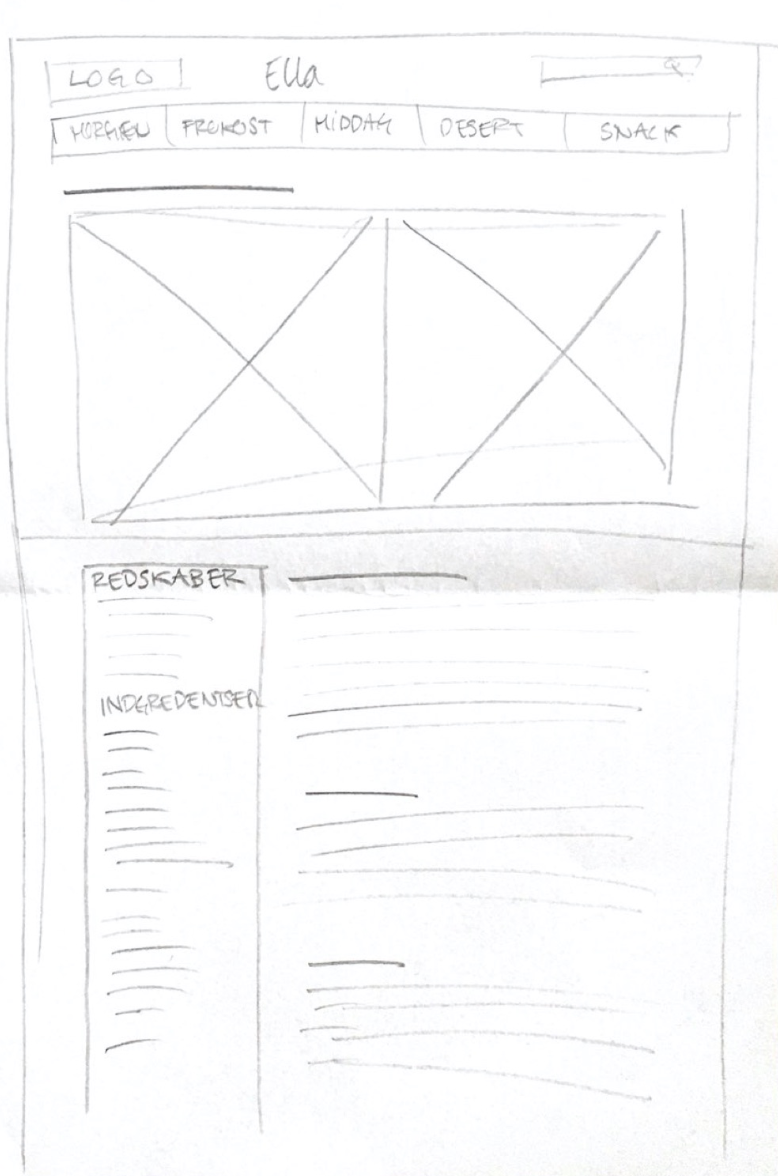 LOGO Ella
MORGEN FROKOST MIDDAG DESERT SNACK
REDSKABER
INDGREDENTSER